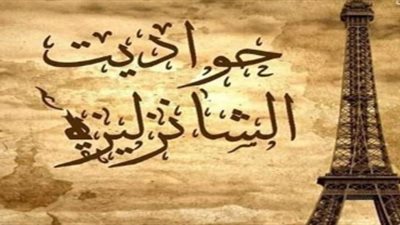 حواديت
الشانزليزيه